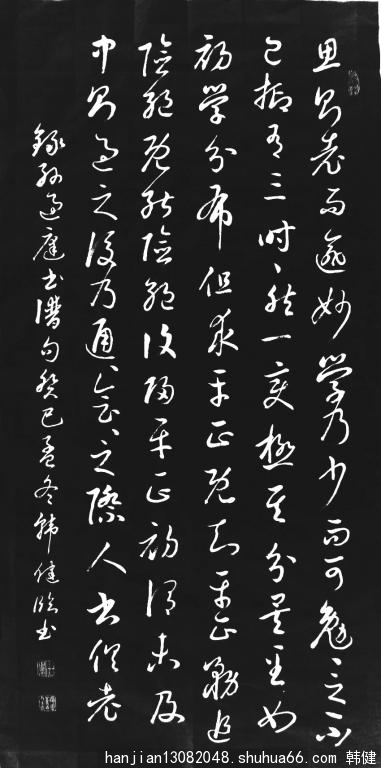 思則老而逾妙學乃少而可勉〻之不
已抑有三時〻然一變極其分矣至如
初學分布但求平正既知平正務追
險絕既能險絕復歸平正初謂未及
中則過之後乃通〻會〻之際人書俱老
錄孫過庭書譜句癸巳孟冬韓健臨書
hanjian13082048.shuhua66.com 韩健